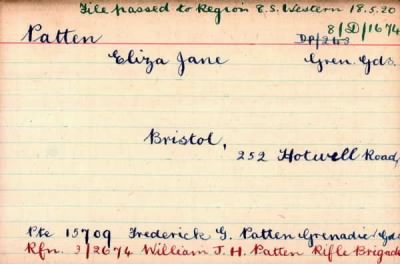 File passed to Region E.S. Western 18.5.20
8/D/1674
Patten DP/243
Eliza Jane Gren. Gds.
Bristol,
252 Hotwell Road,
Pte 15709 Frederick G. Patten Grenadier Gds
Rfn. 3/2674 William J. H. Patten Rifle Brigade